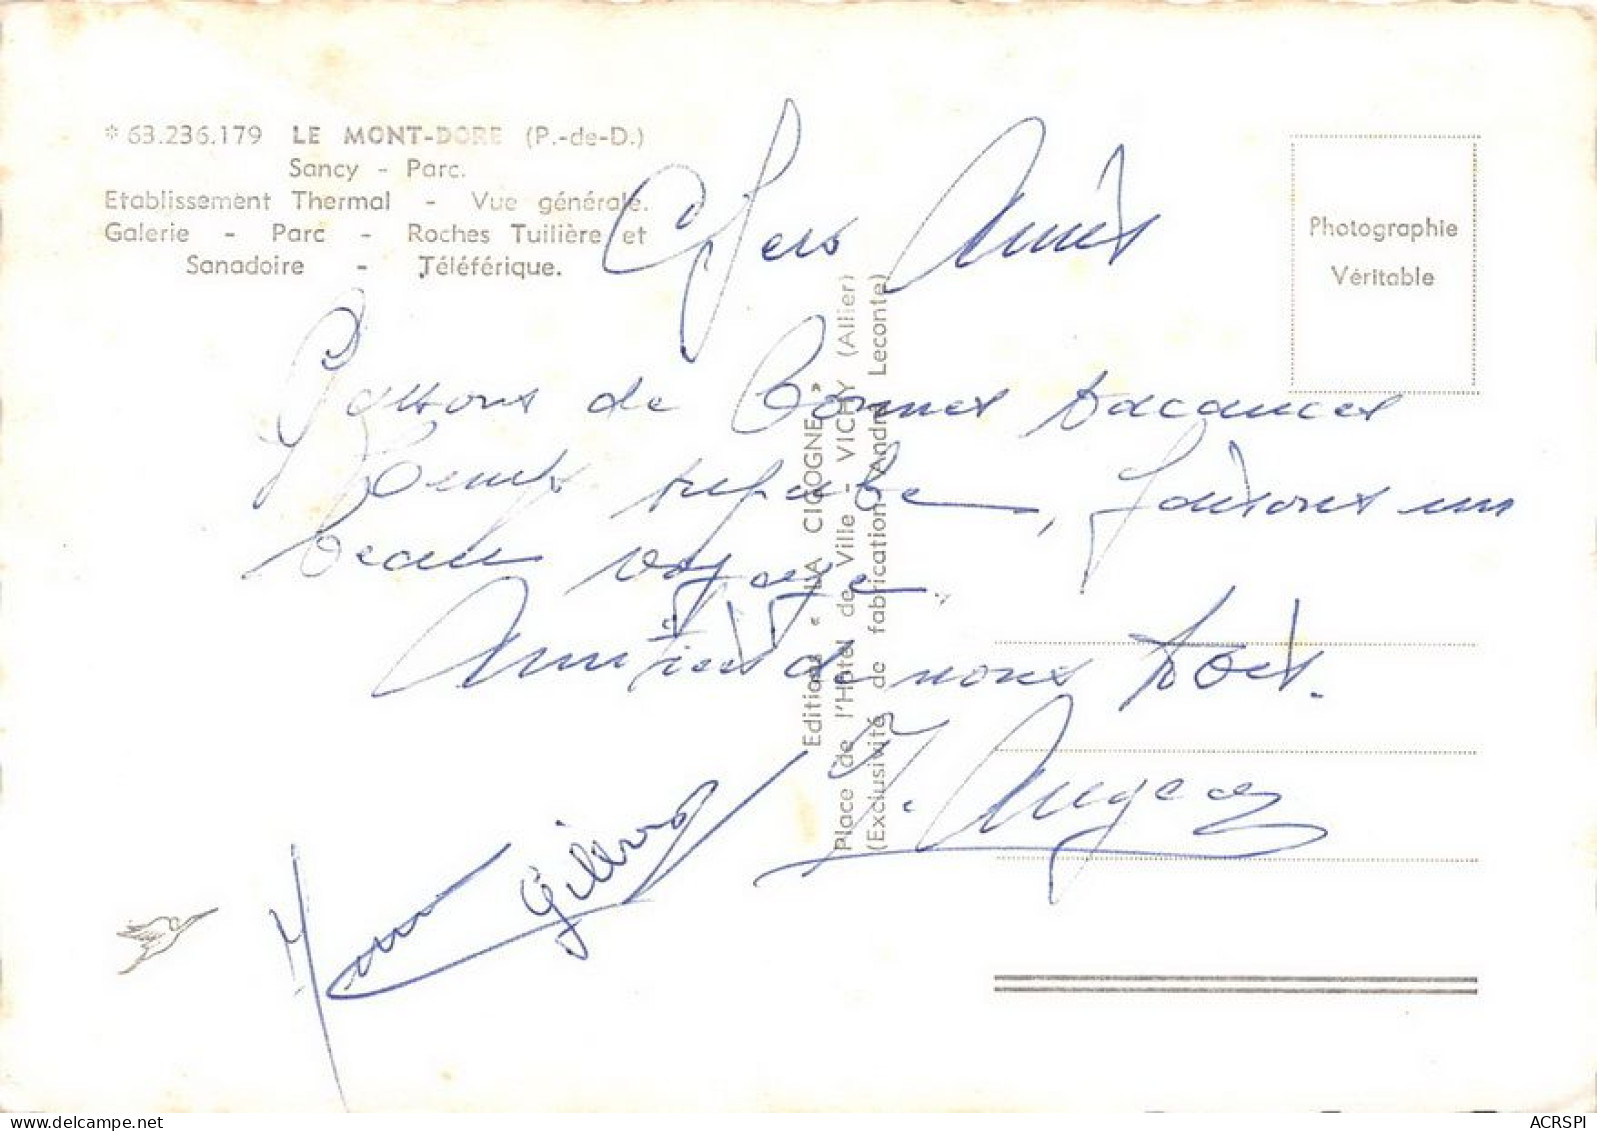 * 63.236.179 LE MONT-DORE (P.-de-D.)
Sancy - Parc.
Etablissement Thermal - Vue générale.
Galerie - Parc - Roches Tuilière et
Sanadoire - Téléférique.
Photographie
Véritable
Chers Amis
Passons de Bonnes vacances
Temps superbe, faisons un
beau voyage.
Amitiés de nous tous.
Editions « LA CIGOGNE »
Place de l'Hôtel de Ville - VICHY (Allier)
(Exclusivité de fabrication André Leconte)
delcampe.net
ACRSPI